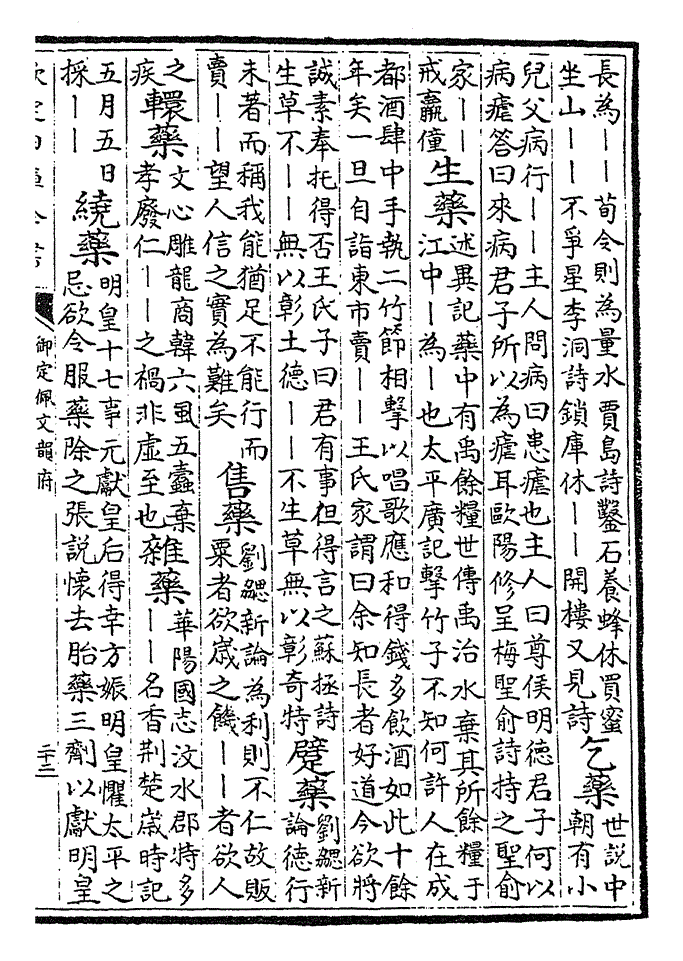 長為――荀令則為量水 賈島詩鑿石養蜂休買蜜
坐山――不爭星李洞詩鎖庫休――開樓又見詩
乞藥
世說中
朝有小
兒父病行――主人問病曰患瘧也主人曰尊侯明德君子何以
病瘧答曰來病君子所以為瘧耳歐陽修呈梅聖俞詩持之聖俞
家――
戒羸僮
生藥
述異記藥中有禹餘糧世傳禹治水棄其所餘糧于
江中―為―也太平廣記擊竹子不知何許人在成
都酒肆中手執二竹節相擊以唱歌應和得錢多飲酒如此十餘
年矣一旦自詣東市賣――王氏家謂曰余知長者好道今欲將
誠素奉托得否王氏子曰君有事但得言之蘇拯詩
生草不――無以彰土德――不生草無以彰奇特
躄藥
劉勰新
論德行
未著而稱我能猶足不能行而
賣――望人信之實為難矣
售藥
劉勰新論為利則不仁故販
粟者欲歲之饑――者欲人
之
疾
轘藥
文心雕龍商韓六風五蠹棄
孝廢仁――之禍非虛至也
雜藥
華陽國志汶水郡特多
――名香荆楚歲時記
五月五日
採――
繞藥
明皇十七事元獻皇后得幸方娠明皇懼太平之
忌欲令服藥除之張說懷去胎藥三劑以獻明皇
御定佩文韻府